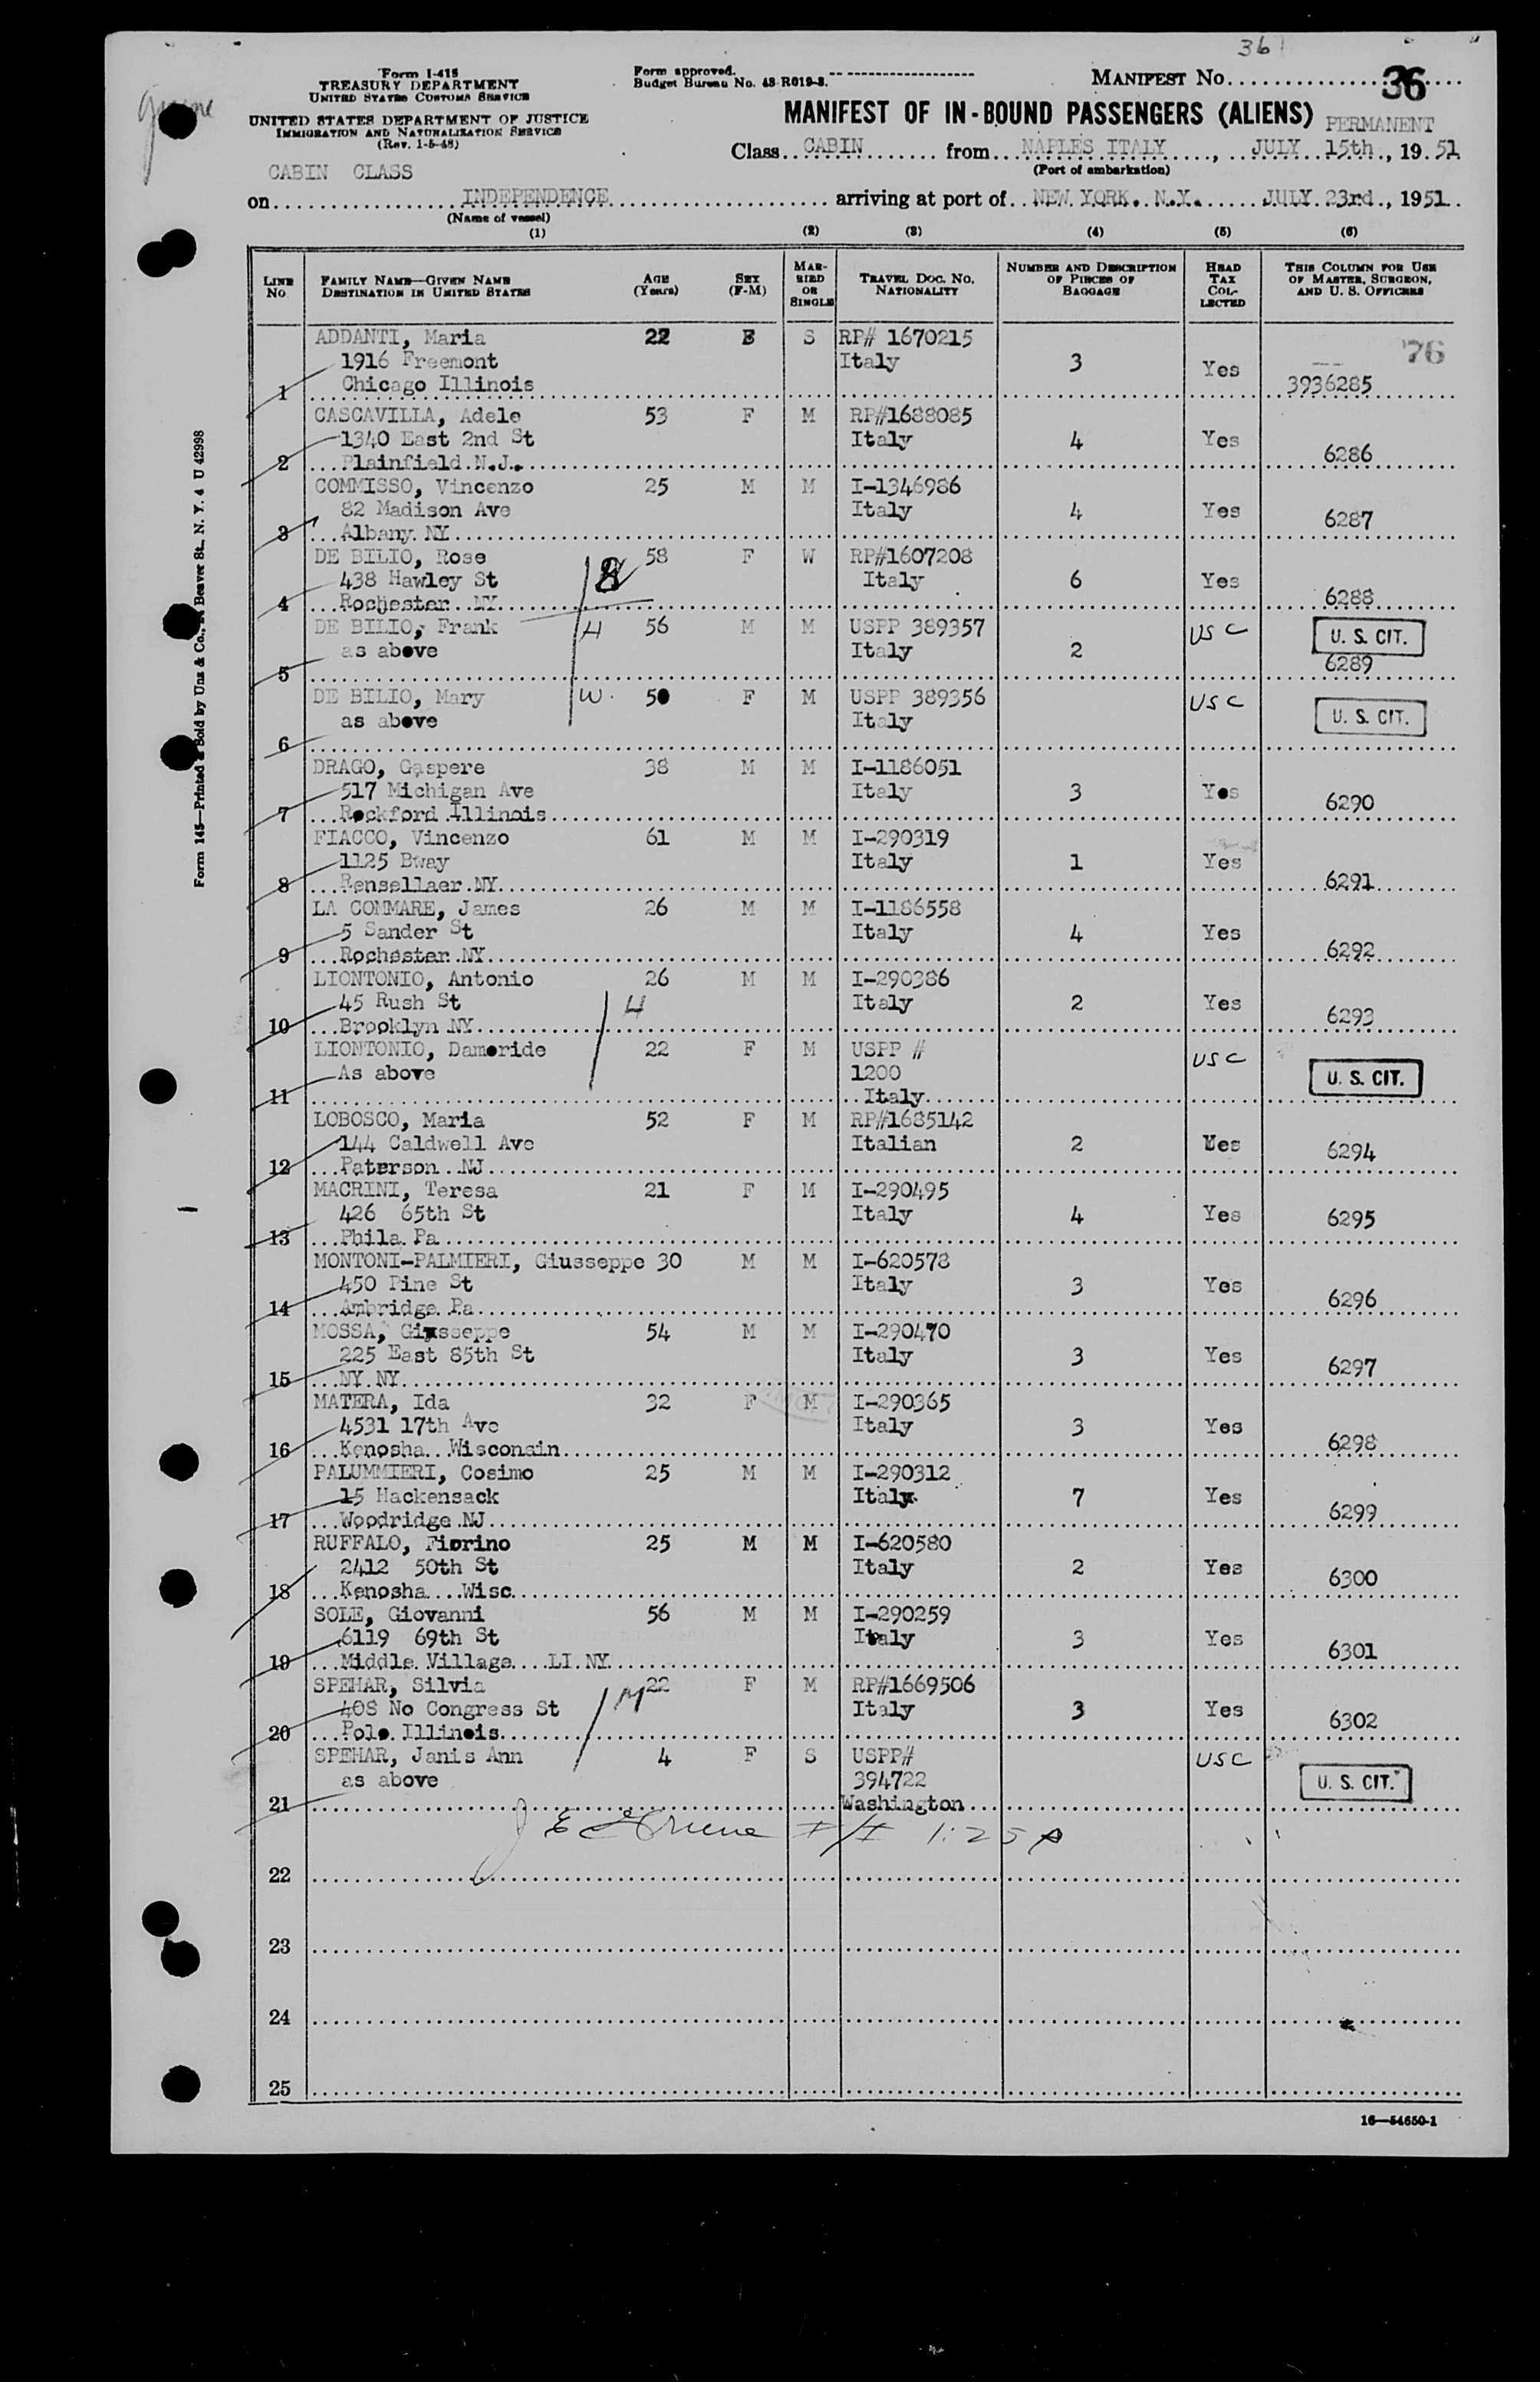 36
Greene
Form I-415
TREASURY DEPARTMENT
UNITED STATES CUSTOMS SERVICE
UNITED STATES DEPARTMENT OF JUSTICE
IMMIGRATION AND NATURALIZATION SERVICE
(Rev. 1-5-48)
Form approved.
Budget Bureau No. 43-R019-3.
MANIFEST No. 36
MANIFEST OF IN-BOUND PASSENGERS (ALIENS) PERMANENT
Class CABIN from NAPLES ITALY, JULY 15th, 1951
(Port of embarkation)
CABIN CLASS
on INDEPENDENCE arriving at port of NEW YORK. N.Y. JULY 23rd, 1951
(Name of vessel)
(1) (2) (3) (4) (5) (6)
LINE No FAMILY NAME—GIVEN NAME DESTINATION IN UNITED STATES AGE (Years) SEX (F-M) MARRIED OR SINGLE TRAVEL DOC. No. NATIONALITY NUMBER AND DESCRIPTION OF PIECES OF BAGGAGE HEAD TAX COLLECTED THIS COLUMN FOR USE OF MASTER, SURGEON, AND U. S. OFFICERS
ADDANTI, Maria 22 F S RP# 1670215 76
1916 Freemont Italy 3 Yes
1 Chicago Illinois 3936285
CASCAVILLA, Adele 53 F M RP#1688085
1340 East 2nd St Italy 4 Yes
2 Plainfield N.J. 6286
COMMISSO, Vincenzo 25 M M I-1346986
82 Madison Ave Italy 4 Yes
3 Albany NY 6287
DE BILIO, Rose 58 F W RP#1607208
438 Hawley St Italy 6 Yes
4 Rochester NY 6288
DE BILIO, Frank H 56 M M USPP 389357 USC U. S. CIT.
as above Italy 2
5 6289
DE BILIO, Mary W. 50 F M USPP 389356 USC U. S. CIT.
as above Italy
6
DRAGO, Gaspere 38 M M I-1186051
517 Michigan Ave Italy 3 Yes
7 Rockford Illinois 6290
FIACCO, Vincenzo 61 M M I-290319
1125 Bway Italy 1 Yes
8 Rensellaer NY 6291
LA COMMARE, James 26 M M I-1186558
5 Sander St Italy 4 Yes
9 Rochester NY 6292
LIONTONIO, Antonio 26 M M I-290386
45 Rush St H Italy 2 Yes
10 Brooklyn NY 6293
LIONTONIO, Dameride 22 F M USPP # USC
As above 1200 U. S. CIT.
11 Italy
LOBOSCO, Maria 52 F M RP#1685142
144 Caldwell Ave Italian 2 Yes
12 Paterson NJ 6294
MACRINI, Teresa 21 F M I-290495
426 65th St Italy 4 Yes 6295
13 Phila Pa
MONTONI-PALMIERI, Giusseppe 30 M M I-620578
450 Pine St Italy 3 Yes
14 Ambridge Pa 6296
MOSSA, Giusseppe 54 M M I-290470
225 East 85th St Italy 3 Yes
15 NY NY 6297
MATERA, Ida 32 F M I-290365
4531 17th Ave Italy 3 Yes
16 Kenosha Wisconsin 6298
PALUMMIERI, Cosimo 25 M M I-290312
15 Hackensack Italy 7 Yes
17 Woodridge NJ 6299
RUFFALO, Fiorino 25 M M I-620580
2412 50th St Italy 2 Yes
18 Kenosha Wisc 6300
SOLE, Giovanni 56 M M I-290259
6119 69th St Italy 3 Yes
19 Middle Village LI NY 6301
SPEHAR, Silvia 22 F M RP#1669506
408 No Congress St M Italy 3 Yes
20 Polo Illinois 6302
SPEHAR, Janis Ann 4 F S USPP# USC
as above 394722 U. S. CIT.
21 Washington
J E Greene I/I 1:25 P
22
23
24
25
16—54650-1
Form 145—Printed & Sold by Unz & Co., Beaver St., N. Y. 4 U 42998